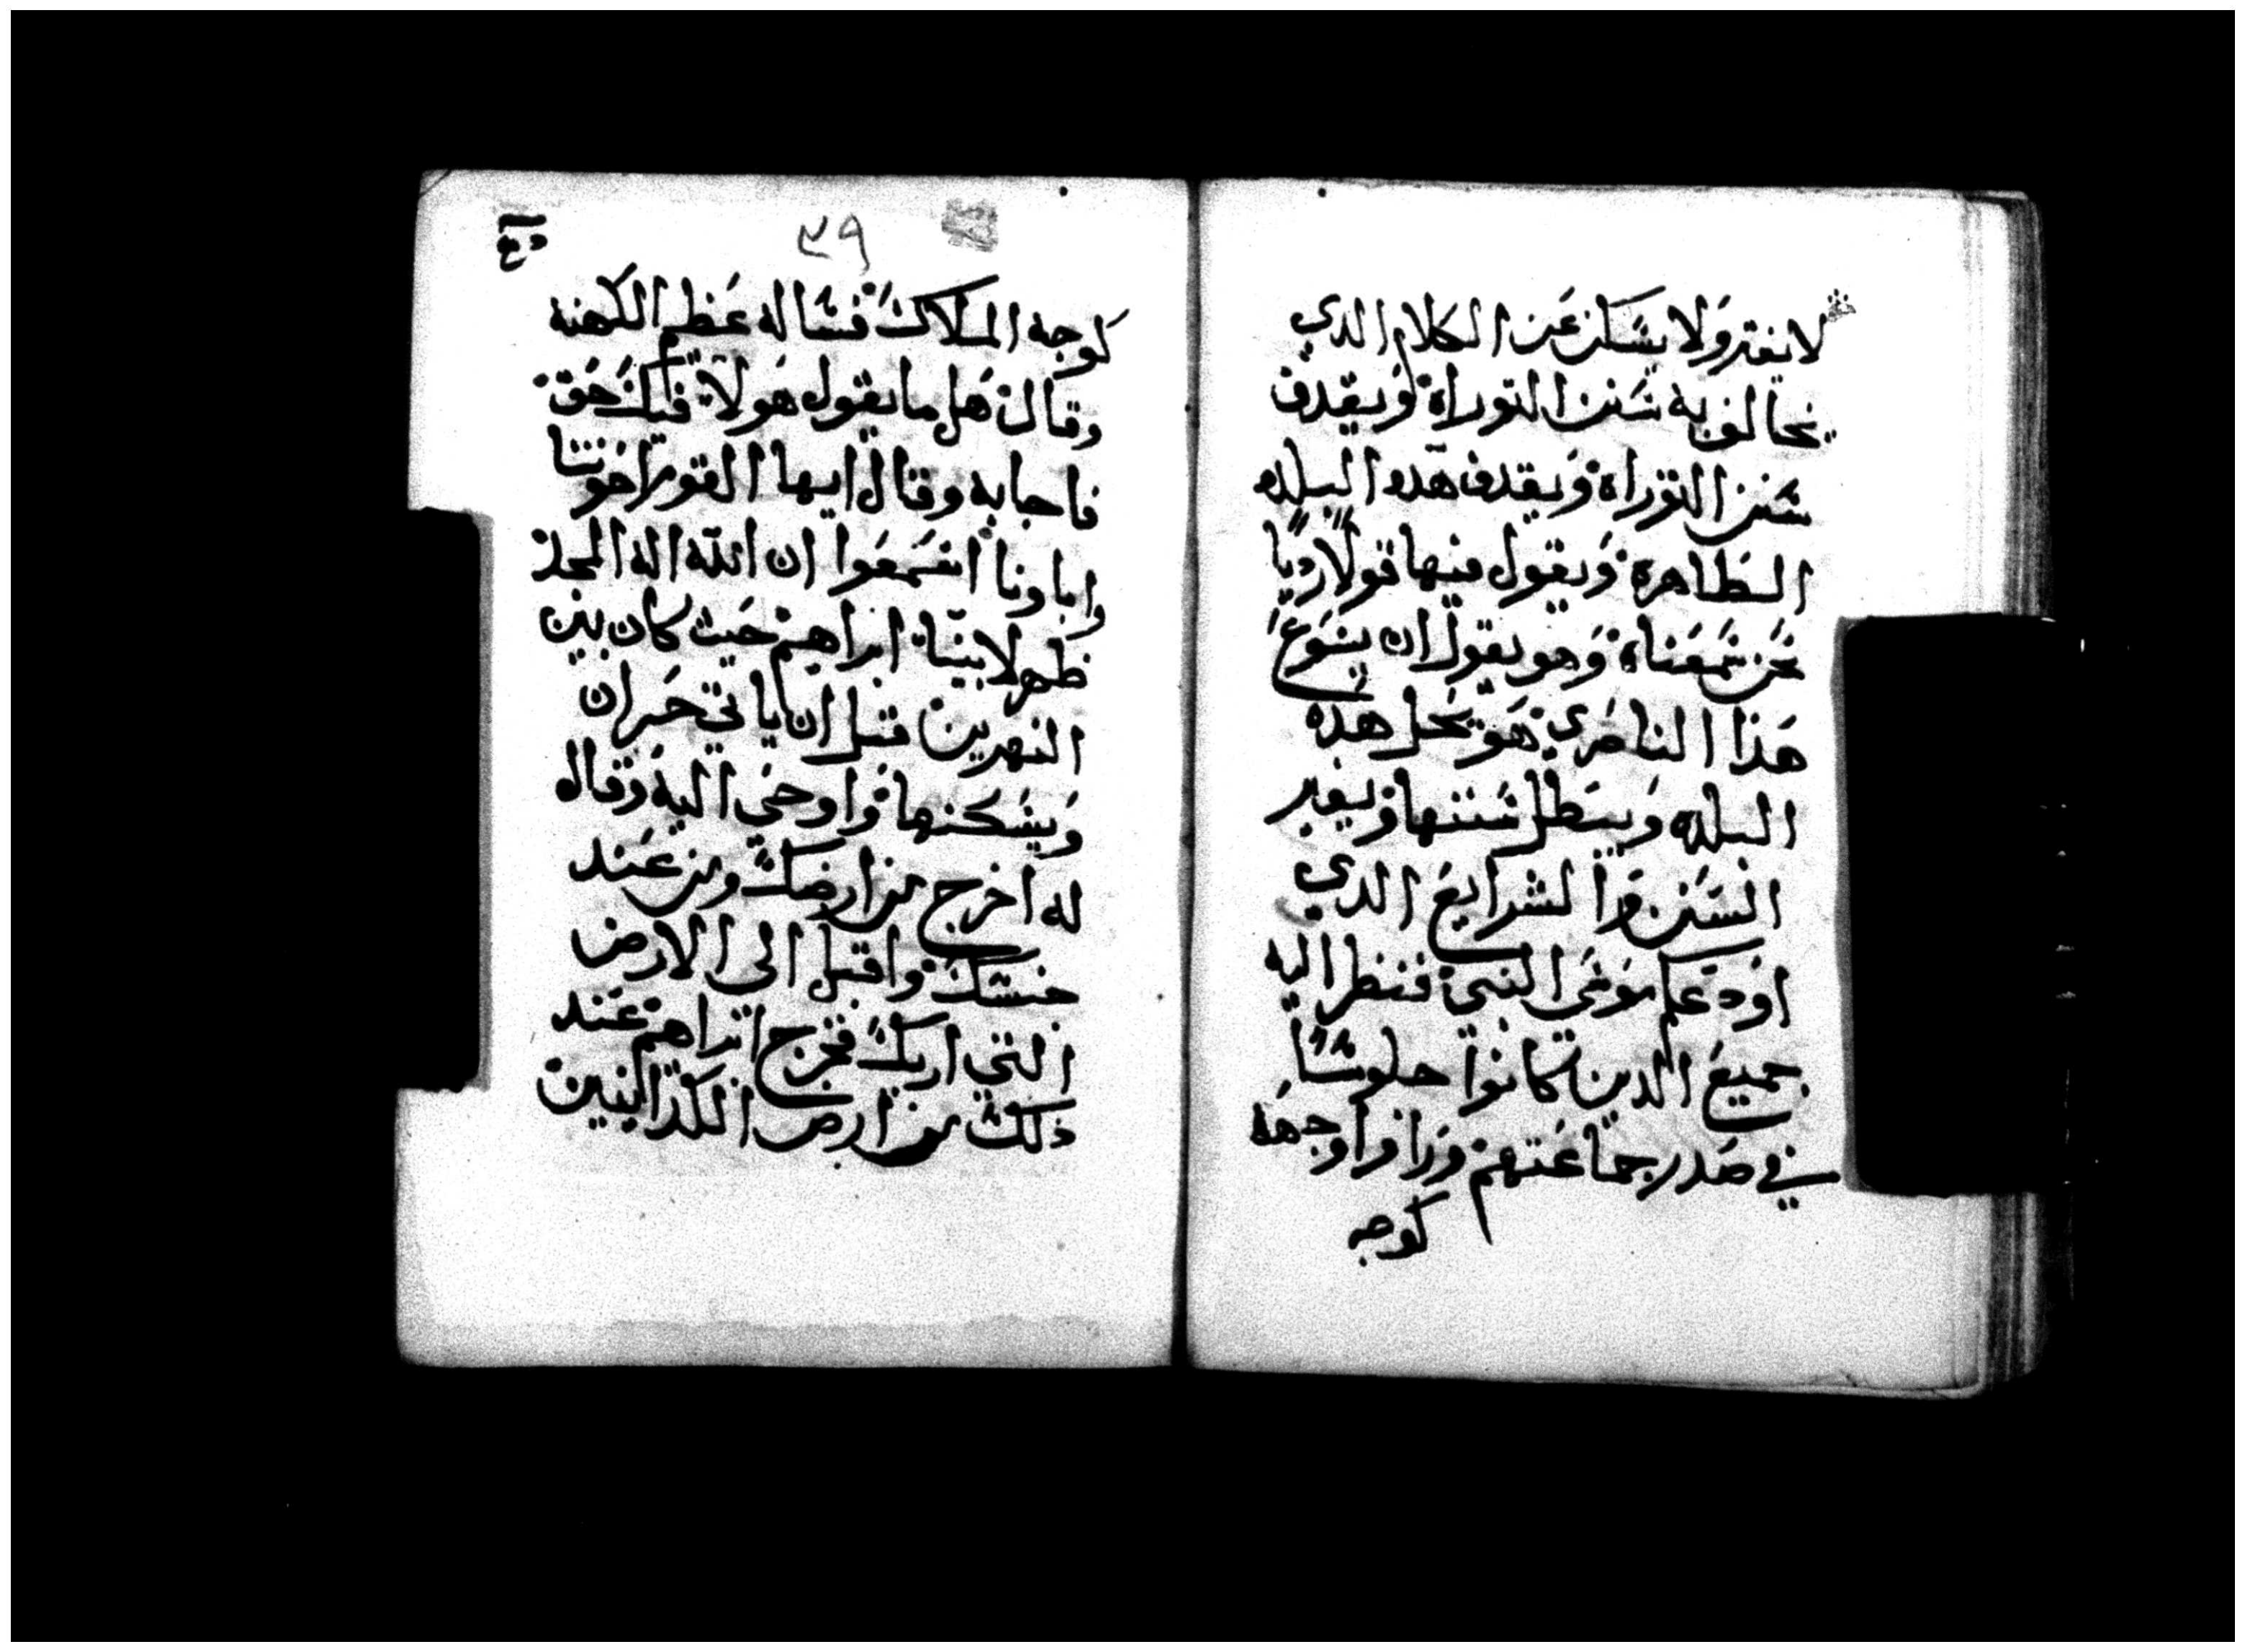 لا يفتر ولا يسكن عن الكلام الدي
يخالف به سنن التوراة ويقدف
سنن التوراة ويقدف هده البلده
الطاهرة ويقول فيها قولا رديا
نحن سمعناه وهو يقول ان يسوع
هذا الناصري هو يحل هده
البلده ويبطل سننها ويغير
السنن والشرايع الدي
اودعكم موسي النبي فنظر اليه
جميع الدين كانوا جلوسا
في صدر جماعتهم ورا وا وجهه
كوجه
٣٩
كوجه الملاك فساله عظيم الكهنه
وقال هل ما يقول هولا فيك حق
فاجابه وقال ايها القوم اخوتنا
واباونا اسمعوا ان الله اله المجد
ظهر لابينا ابراهيم حيث كان بين
النهرين قبل ان ياتي حران
ويسكنها واوحي اليه وقال
له اخرج من ارضك ومن عند
جنسك واقبل الى الارض
التي اريك فخرج ابراهيم عند
ذلك من ارض الكلدانيين